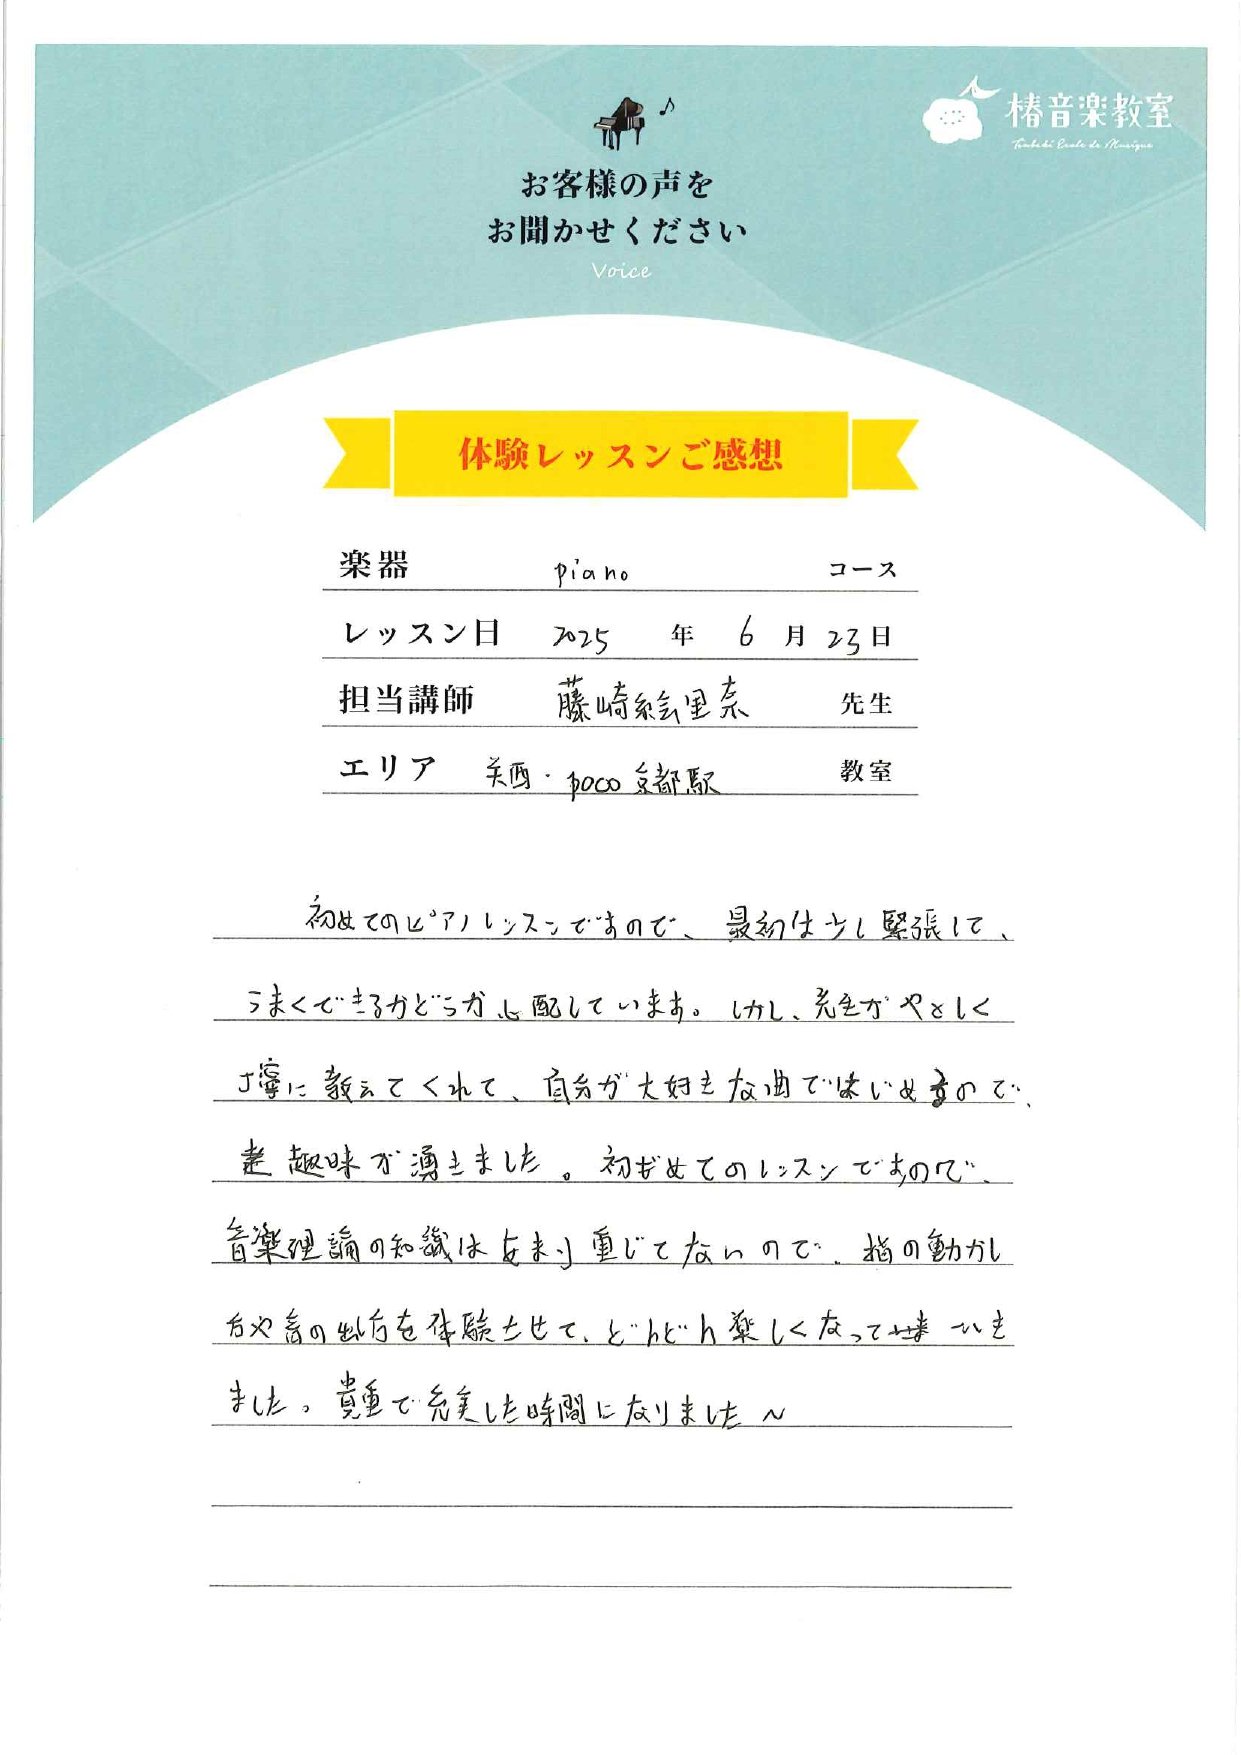 椿音楽教室
Tsubaki Ecole de Musique
お客様の声を
お聞かせください
Voice
体験レッスンご感想
楽器 piano コース
レッスン日 2025 年 6 月 23 日
担当講師 藤崎絵里奈 先生
エリア 关西・poco京都駅 教室
初めてのピアノレッスンですので、最初は少し緊張して、
うまくできるかどうか心配しています。しかし、先生がやさしく
丁寧に教えてくれて、自分が大好きな曲ではじめるので、
趣味が湧きました。初めてのレッスンですので、
音楽理論の知識はあまり重じてないので、指の動かし
方や音の出し方を体験させて、どんどん楽しくなって いき
ました。貴重で充実した時間になりました～